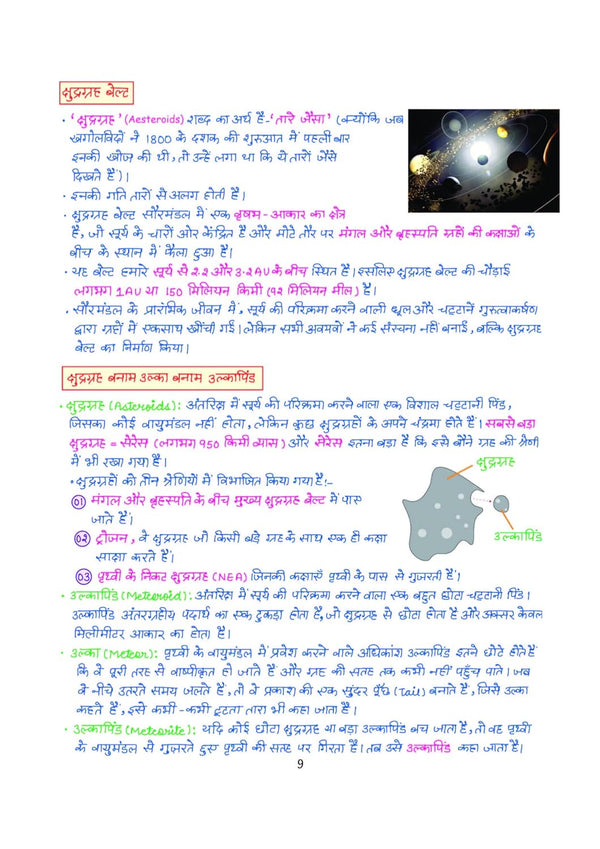 क्षुद्रग्रह बेल्ट
• 'क्षुद्रग्रह' (Aesteroids) शब्द का अर्थ है - 'तारे जैसा' (क्योंकि जब
खगोलविदों ने 1800 के दशक की शुरुआत में पहली बार
इनकी खोज की थी, तो उन्हें लगा था कि ये तारों जैसे
दिखते हैं)।
• इनकी गति तारों से अलग होती है।
• क्षुद्रग्रह बेल्ट सौरमंडल में एक वृषभ-आकार का क्षेत्र
है, जो सूर्य के चारों ओर केंद्रित है और मोटे तौर पर मंगल और बृहस्पति ग्रहों की कक्षाओं के
बीच के स्थान में फैला हुआ है।
• यह बेल्ट हमारे सूर्य से 2.2 और 3.2 AU के बीच स्थित है। इसलिए क्षुद्रग्रह बेल्ट की चौड़ाई
लगभग 1 AU या 150 मिलियन किमी (92 मिलियन मील) है।
• सौरमंडल के प्रारंभिक जीवन में, सूर्य की परिक्रमा करने वाली धूल और चट्टानें गुरुत्वाकर्षण
द्वारा ग्रहों में एकसाथ खींची गईं। लेकिन सभी अवयवों ने कई संरचना नहीं बनाई, बल्कि क्षुद्रग्रह
बेल्ट का निर्माण किया।
क्षुद्रग्रह बनाम उल्का बनाम उल्कापिंड
• क्षुद्रग्रह (Asteroids): अंतरिक्ष में सूर्य की परिक्रमा करने वाला एक विशाल चट्टानी पिंड,
जिसका कोई वायुमंडल नहीं होता, लेकिन कुछ क्षुद्रग्रहों के अपने चंद्रमा होते हैं। सबसे बड़ा
क्षुद्रग्रह = सेरेस (लगभग 950 किमी व्यास) और सेरेस इतना बड़ा है कि इसे बौने ग्रह की श्रेणी
में भी रखा गया है।
• क्षुद्रग्रहों को तीन श्रेणियों में विभाजित किया गया है:-
01 मंगल और बृहस्पति के बीच मुख्य क्षुद्रग्रह बेल्ट में पास
जाते हैं।
02 ट्रोजन, वे क्षुद्रग्रह जो किसी बड़े ग्रह के साथ एक ही कक्षा
साझा करते हैं।
03 पृथ्वी के निकट क्षुद्रग्रह (NEA) जिनकी कक्षाएँ पृथ्वी के पास से गुज़रती हैं।
क्षुद्रग्रह
उल्कापिंड
• उल्कापिंड (Meteoroid): अंतरिक्ष में सूर्य की परिक्रमा करने वाला एक बहुत छोटा चट्टानी पिंड।
उल्कापिंड अंतरग्रहीय पदार्थ का एक टुकड़ा होता है, जो क्षुद्रग्रह से छोटा होता है और अक्सर केवल
मिलीमीटर आकार का होता है।
• उल्का (Meteor): पृथ्वी के वायुमंडल में प्रवेश करने वाले अधिकांश उल्कापिंड इतने छोटे होते हैं
कि वे पूरी तरह से वाष्पीकृत हो जाते हैं और ग्रह की सतह तक कभी नहीं पहुँच पाते। जब
वे नीचे उतरते समय जलते हैं, तो वे प्रकाश की एक सुंदर पूँछ (Tail) बनाते हैं, जिसे उल्का
कहते हैं, इसे कभी-कभी टूटता तारा भी कहा जाता है।
• उल्कापिंड (Meteorite): यदि कोई छोटा क्षुद्रग्रह या बड़ा उल्कापिंड बच जाता है, तो वह पृथ्वी
के वायुमंडल से गुज़रते हुए पृथ्वी की सतह पर गिरता है। तब उसे उल्कापिंड कहा जाता है।
9